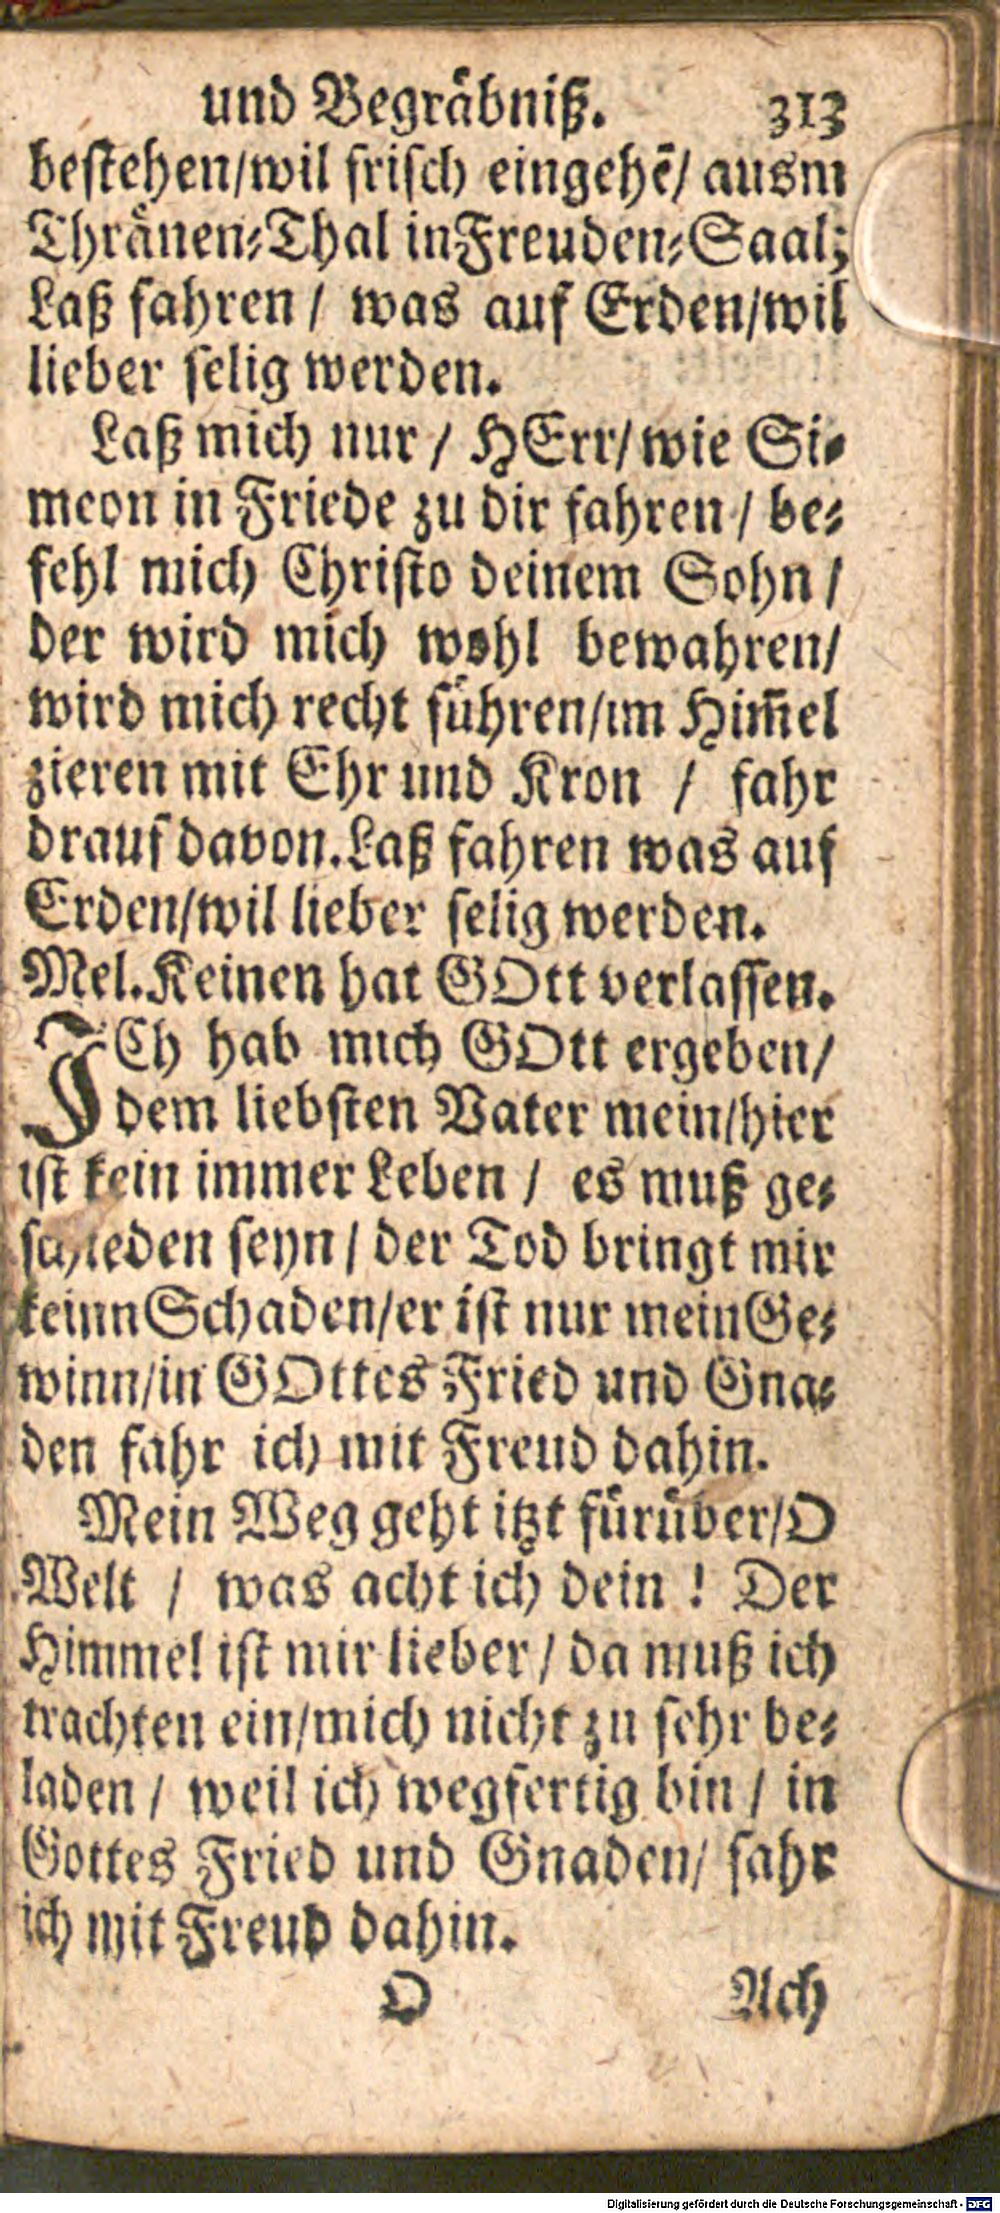 und Begräbniß. 313
bestehen/wil frisch eingehē/ ausm
Thränen-Thal in Freuden-Saal;
Laß fahren / was auf Erden/wil
lieber selig werden.
Laß mich nur / HErr/ wie Si-
meon in Friede zu dir fahren / be-
fehl mich Christo deinem Sohn /
der wird mich wohl bewahren/
wird mich recht führen/im Him̃el
zieren mit Ehr und Kron / fahr
drauf davon. Laß fahren was auf
Erden/wil lieber selig werden.
Mel. Keinen hat GOtt verlassen.
ICh hab mich GOtt ergeben/
dem liebsten Vater mein/hier
ist kein immer Leben / es muß ge-
schieden seyn / der Tod bringt mir
keinn Schaden/er ist nur mein Ge-
winn/in GOttes Fried und Gna-
den fahr ich mit Freud dahin.
Mein Weg geht itzt fürüber/O
Welt / was acht ich dein ! Der
Himmel ist mir lieber / da muß ich
trachten ein/mich nicht zu sehr be-
laden / weil ich wegfertig bin / in
Gottes Fried und Gnaden/ fahr
ich mit Freud dahin.
O Ach
Digitalisierung gefördert durch die Deutsche Forschungsgemeinschaft - DFG